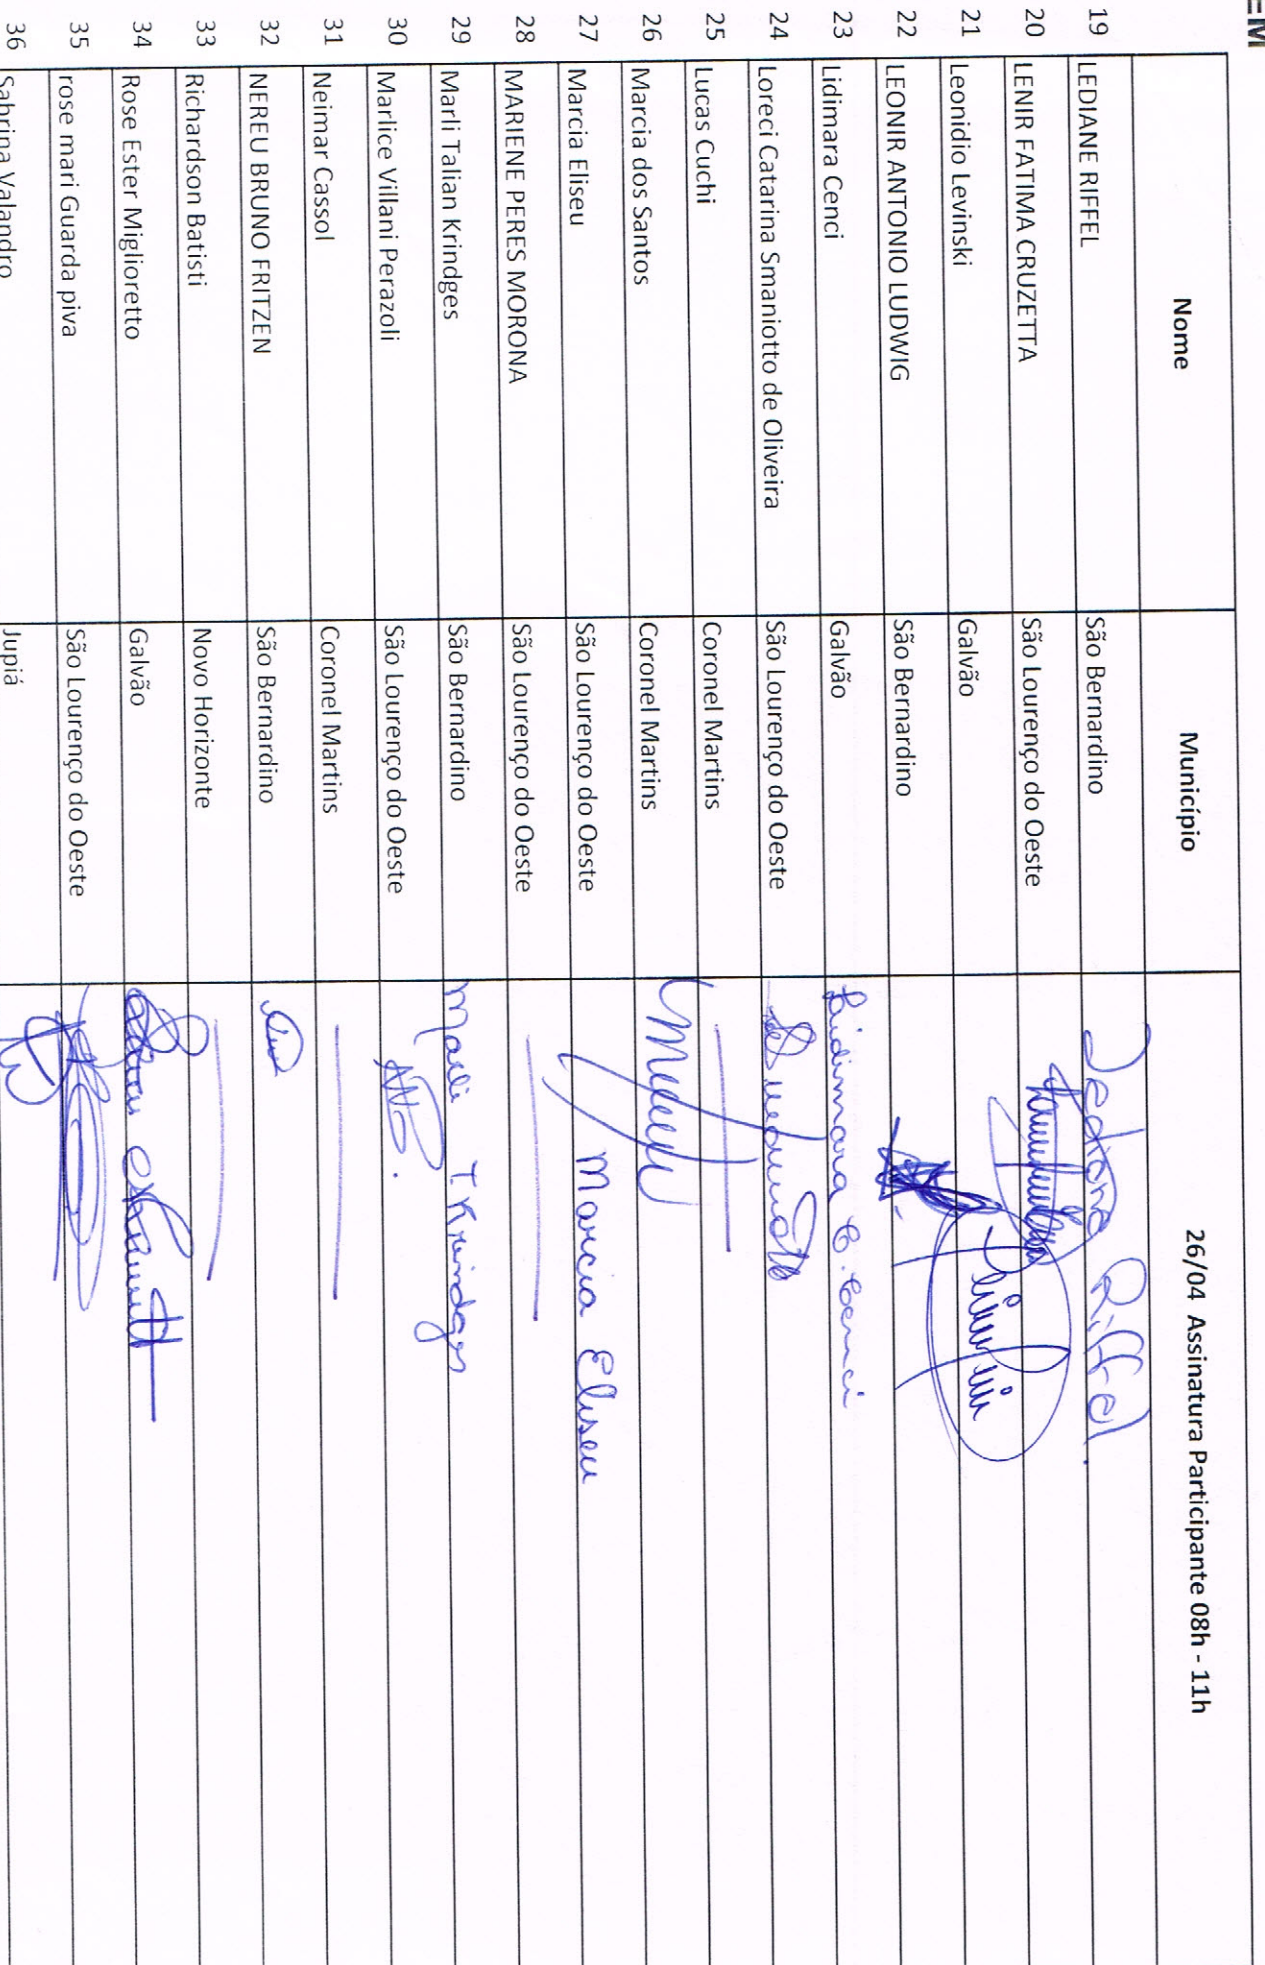 Nome Município 26/04 Assinatura Participante 08h - 11h
19 LEDIANE RIFFEL São Bernardino Lediane Riffel.
20 LENIR FATIMA CRUZETTA São Lourenço do Oeste
21 Leonidio Levinski Galvão
22 LEONIR ANTONIO LUDWIG São Bernardino
23 Lidimara Cenci Galvão Lidimara C. Cenci
24 Loreci Catarina Smaniotto de Oliveira São Lourenço do Oeste
25 Lucas Cuchi Coronel Martins
26 Marcia dos Santos Coronel Martins
27 Marcia Eliseu São Lourenço do Oeste Marcia Eliseu
28 MARIENE PERES MORONA São Lourenço do Oeste
29 Marli Talian Krindges São Bernardino Marli T. Krindges
30 Marlice Villani Perazoli São Lourenço do Oeste
31 Neimar Cassol Coronel Martins
32 NEREU BRUNO FRITZEN São Bernardino
33 Richardson Batisti Novo Horizonte
34 Rose Ester Miglioretto Galvão
35 rose mari Guarda piva São Lourenço do Oeste
36 Sabrina Valandro Jupiá